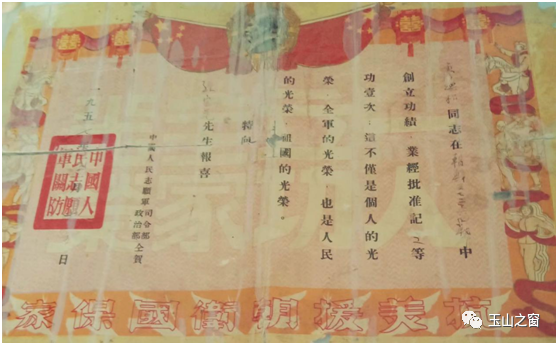 同志在 中
創立功績 業經批准記 等
功壹次，這不僅是個人的光
榮，全軍的光榮，也是人民
的光榮，祖國的光榮。
特向
先生報喜
中國人民志願軍司令部
政治部仝賀
一九五 日
中國人
民志願
軍關防
抗美援朝衛國保家
玉山之窗